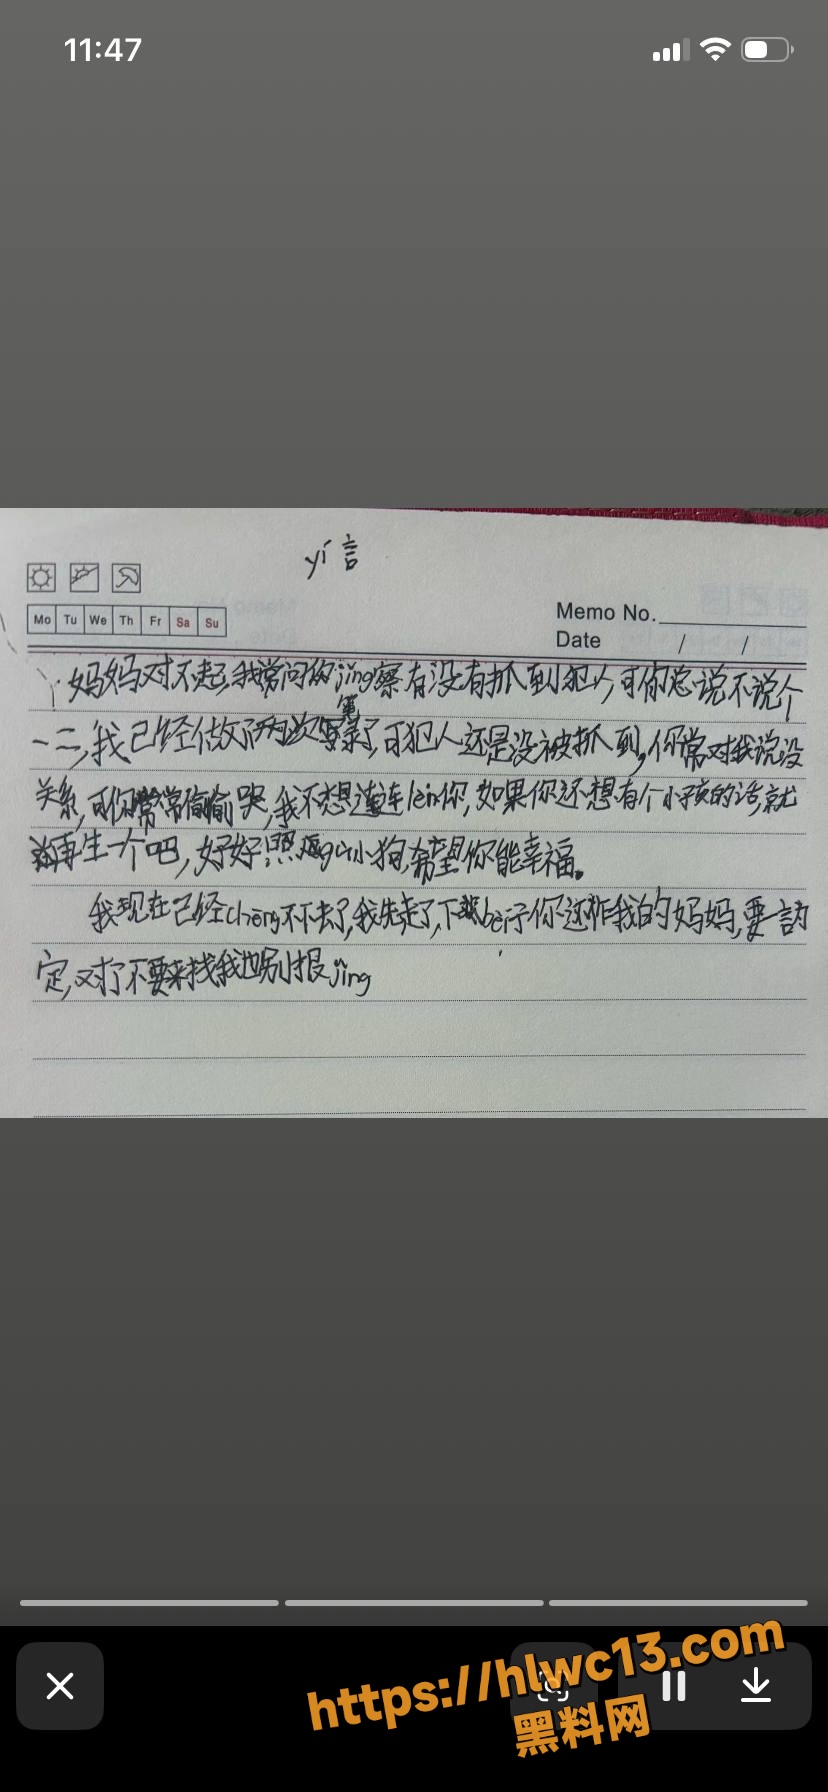 11:47
yí言
Mo Tu We Th Fr Sa Su
Memo No.
Date / /
妈妈对不起,我常问你jing察有没有抓到犯人,可你总说不说个
一二,我已经做了两次笔录了,可犯人还是没被抓到,你常对我说没
关系,可你常常偷偷哭,我不想连lèi你,如果你还想有个小孩的话,就
再生一个吧,好好照gu小狗,希望你能幸福。
我现在已经chēng不下去了,我先走了,下bèi子你还作我的妈妈,要一言
定,对了不要来找我也别报jǐng
https://hlwc13.com
黑料网